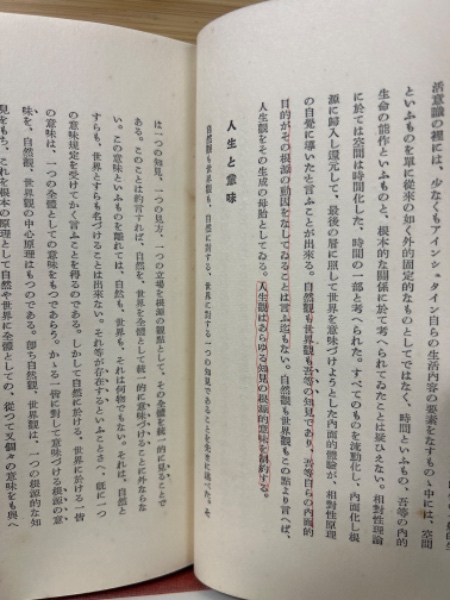 活意識の裡には、少なくもアインシュタイン自らの生活内容の要素をなすものゝ中には、空間
といふものを單に從來の如く外的固定的なものとしてではなく、時間といふもの、吾等の内的
生命の能作といふものと、根本的な關係に於て考へられてゐたことは疑ひえない。相對性理論
に於ては空間は時間化した、時間の一部と考へられた。すべてのものを流動化し、内面化し根
源に歸入し還元して、最後の層に照して世界を意味づけようとした内面的體驗が、相對性原理
の自覺に導いたと言ふことが出來る。自然觀も世界觀も吾等の知見であり、吾等自らの内面的
目的がその根源の動因をなしてゐることは言ふ迄もない。自然觀も世界觀もこの點より言へば、
人生觀をその生成の母胎としてゐる。人生觀はあらゆる知見の根源的意味を制約する。
人生と意味
自然觀も世界觀も、自然に對する、世界に對する一つの知見であることを先きに述べた。そ
は一つの知見、一つの見方、一つの立場を根源の觀點として、その全體を統一的に見ることで
ある。このことは約言すれば、自然を、世界を全體として統一的に意味づけることに外ならな
い。この意味といふものを離れては、自然も、世界も、それは何物でもない。それは、自然と
すらも、世界とすらも名づけることは出來ない。それ等が存在するといふことさへ、既に一つ
の意味規定を受けてかく言ふことを得るのである。しかして自然に於ける、世界に於ける一皆
の意味は、一つの全體としての意味をもつであらう。かゝる一皆に對して意味づける根源の意
味を、自然觀、世界觀の中心原理はもつのである。即ち自然觀、世界觀は、一つの根源的な知
見をもち、これを根本の原理として自然や世界に全體としての、從つて又個々の意味をも與へ